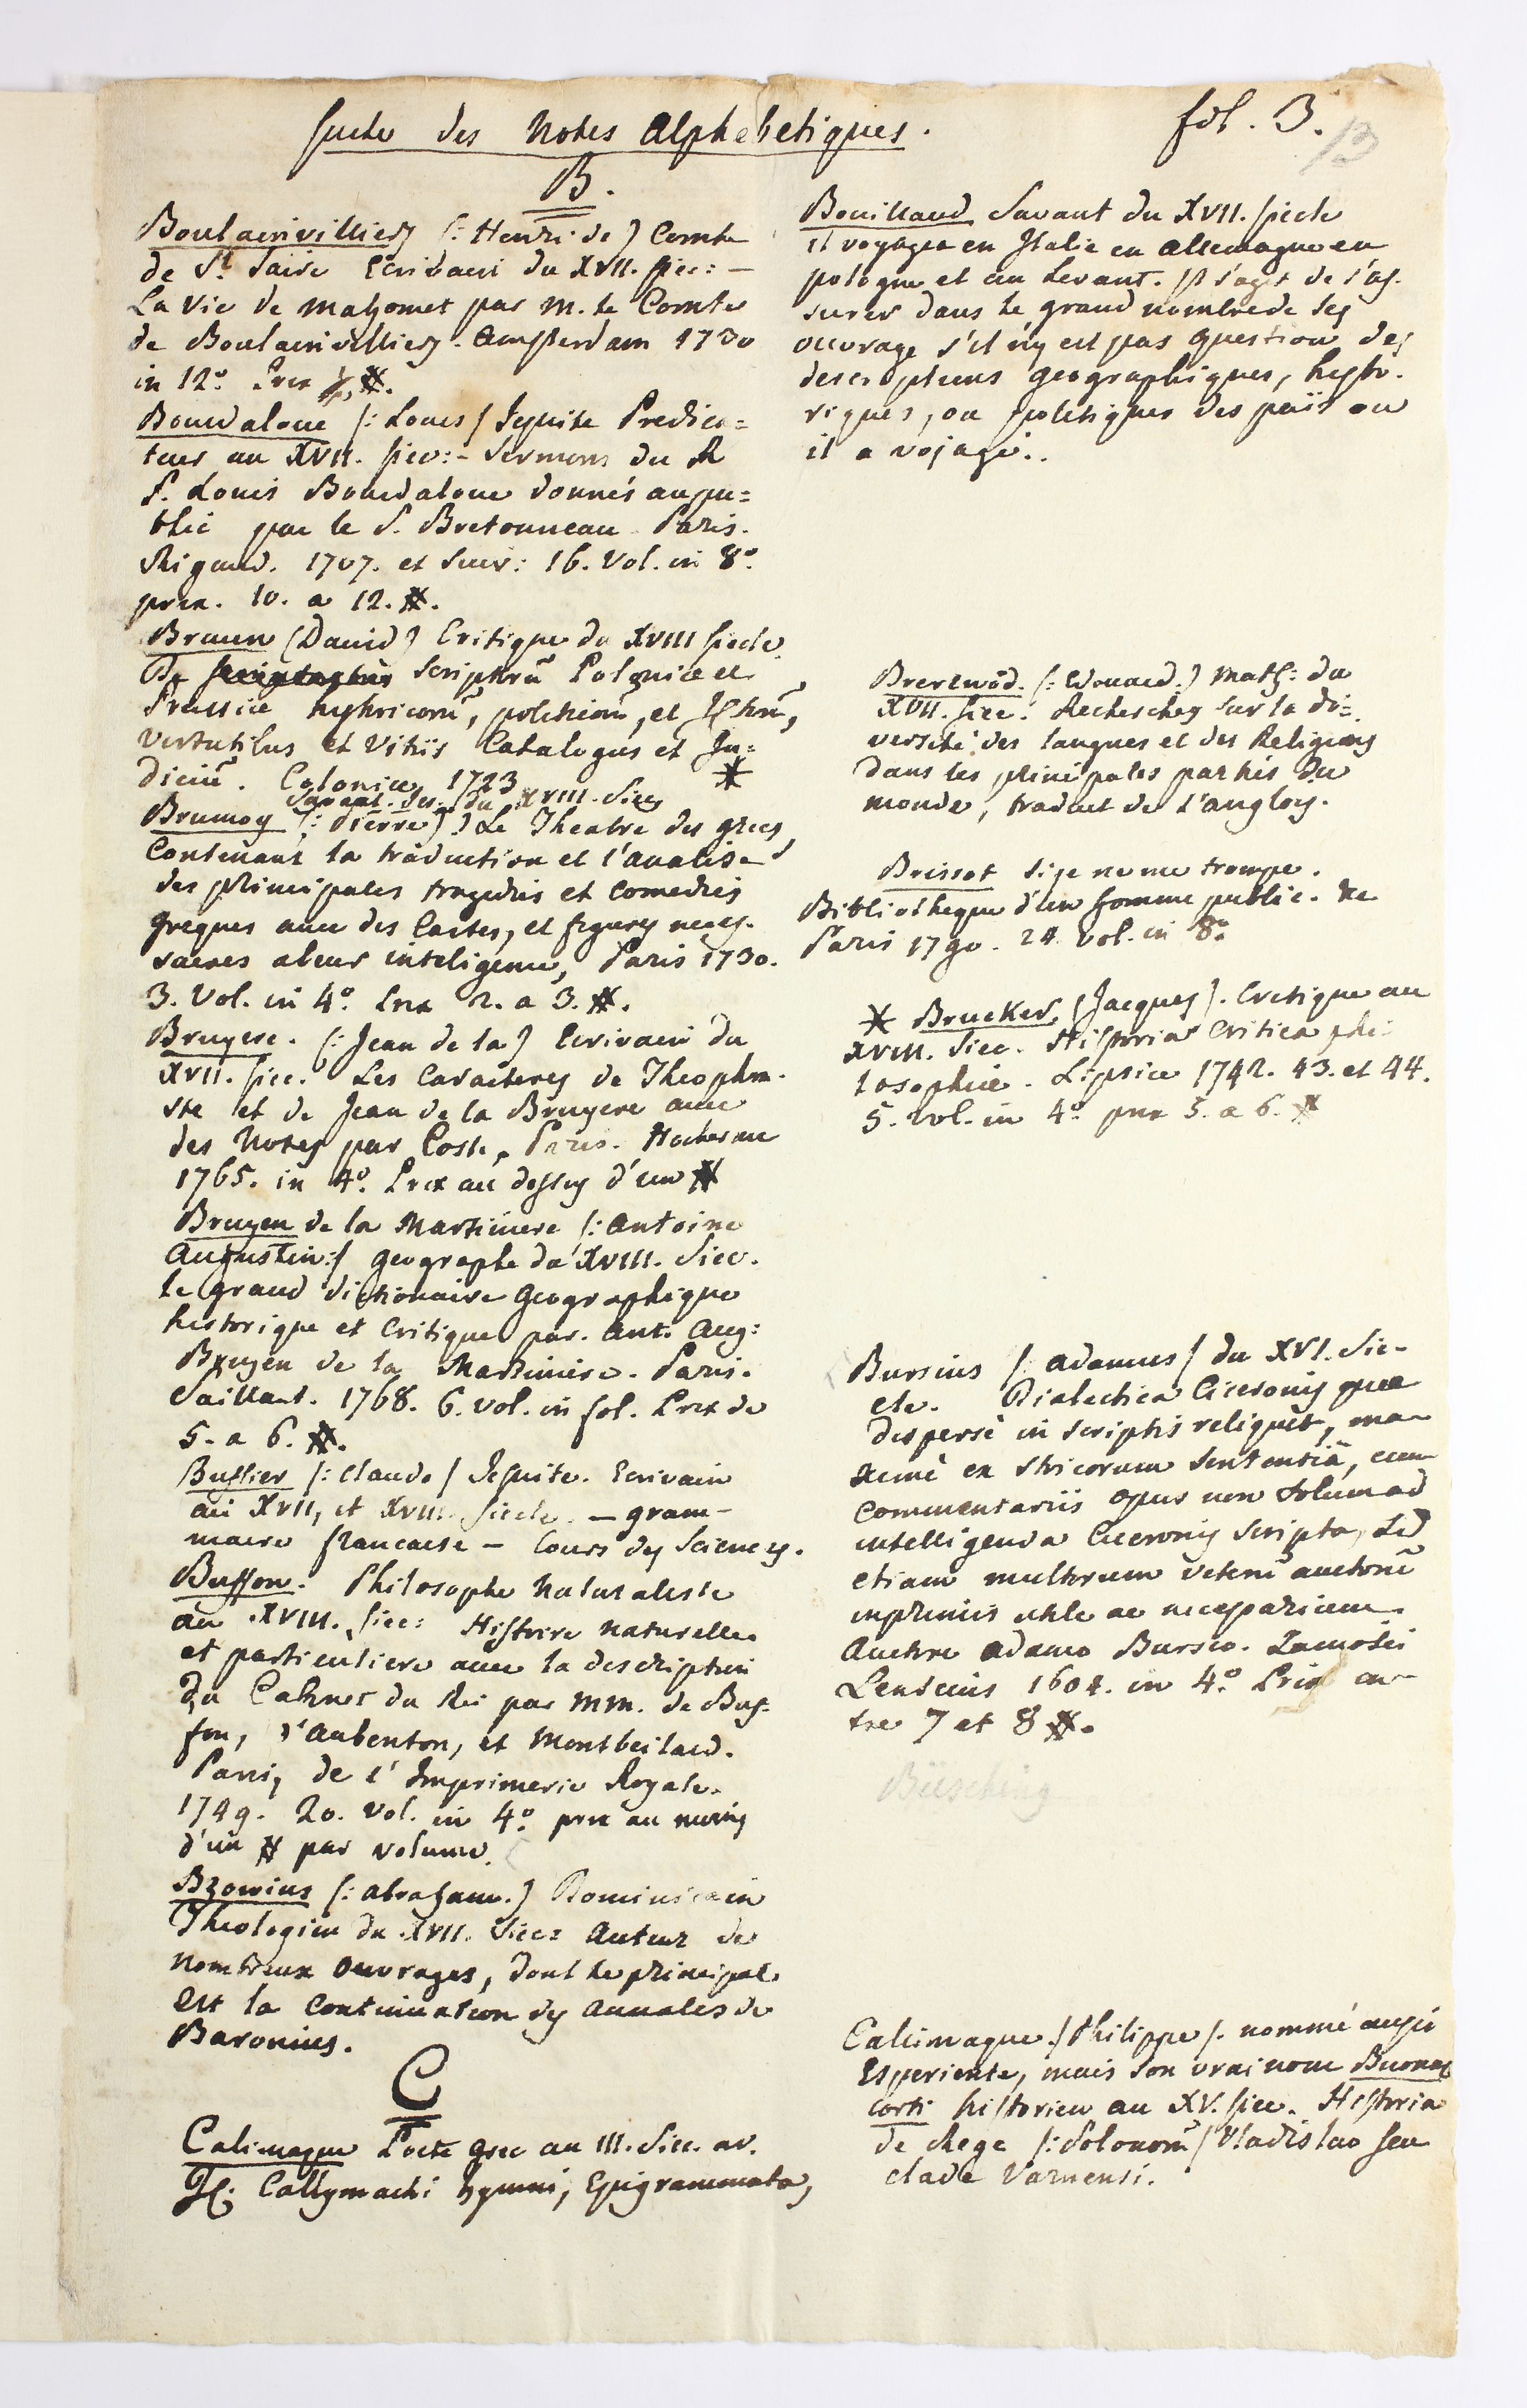 Suite des Notes Alphabetiques.
fol. 3.
13
B.
Boulainvilliers (: Henri de) Comte
de St. Saire Ecrivain du XVII. siec: —
La Vie de Mahomet par M. le Comte
de Boulainvilliers. Amsterdam 1730
in 12o. Prix #.
Bourdaloue (: Louis / Jesuite Predica=
teur au XVII. siec: - Sermons du R
P. Louis Bourdaloue donnés au pu=
blic par le P. Bretonneau Paris.
Rigaud. 1707. et suiv: 16. Vol. in 8o.
prix. 10. a 12. #.
Braun (David) Critique du XVIII siecle.
De Scriptorū Poloniæ et
Prussiæ hystoricorū, politicorū, et JCtorū,
virtutibus et vitiis Catalogus et Ju=
diciū. Coloniæ 1723 *
Savant Jes. du XVIII. Siec
Brumoy (: Pierre) Le Theatre des grecs,
Contenant la traduction et l'analise
des principales tragedies et comedies
greques avec des Cartes, et figures neces-
saires a leur inteligence, Paris 1730.
3. Vol. in 4o. Prix 2. a 3. #.
Bruyere. (: Jean de la) Ecrivain du
XVII. siec. Les Caracteres de Theophra-
ste et de Jean de la Bruyere avec
des Notes par Coste, Paris. Hochereau
1765. in 4o. Prix au dessus d'un #
Bruzen de la Martiniere (: Antoine
Augustin:/ geographe du XVIII. Siec.
le grand dictionaire Geographique
historique et Critique par. Ant. Aug:
Bruzen de la Martiniere. Paris.
Saillant. 1768. 6. vol. in fol. Prix de
5. a 6. #.
Buffier (: Claude / Jesuite. Ecrivain
au XVII, et XVIII. Siecle. — gram-
maire francaise — Cours des Sciences.
Buffon. Philosophe Naturaliste
au XVIII. siec: Histoire naturelle
et particuliere avec la description
du Cabinet du Roi par MM. de Buf-
fon, d'Aubenton, et Montbeilard.
Paris, de l'Imprimerie Royale.
1749. 20. Vol. in 4o. prix au moins
d'un # par volume.
Bzovius (: Abraham.) Dominicain
Theologien du XVII. Siec: Auteur de
nombreux ouvrages, dont le principal
est la Continuation des Annales de
Baronius.
C
Calimaque Poete grec au III. Siec. av.
JC. Callymachi hymni, Epigrammata,
Bouillaud Savant du XVII. siecle
il voyagea en Italie en Allemagne en
pologne et au Levant. Il s'agit de s'as-
surer dans le grand nombre de ses
ouvrage s'il n'y est pas question des
descriptions geographiques, histo-
riques, ou politiques des païs ou
il a vojagé..
Brerewod. (: Edouard.) Math: du
XVII. siec. Recherches sur la di=
versité des langues et des Religions
dans les principales parties du
monde, traduit de l'anglois.
Brissot si je ne me trompe.
Bibliotheque d'un homme public. &c
Paris 1790. 24. vol. in 8o.
* Brucker, (Jacques). Critique au
XVIII. Siec. Historia Critica phi-
losophiæ. Lipsiæ 1742. 43. et 44.
5. vol. in 4o prix 5. a 6. #
Bursius /: Adamus / du XVI. Sie-
cle. Dialectica Ciceronis quæ
disperse in scriptis reliquit, ma-
xime ex stoicorum sententia, cum
commentariis opus non solum ad
intelligenda Ciceronis scripta, sed
etiam multorum veterū auctorū
inprimis utile ac necessarium.
Auctore Adamo Bursio. Zamosci
Lenscius 1604. in 4o. Prix en-
tre 7 et 8 #.
Büsching
Callimaque / Philippe /. nommé aussi
Esperiente, mais son vrai nom Buonac
corti historien au XV. siec. Historia
de Rege (: Polonorū / Vladislao seu
clade Varnensi.